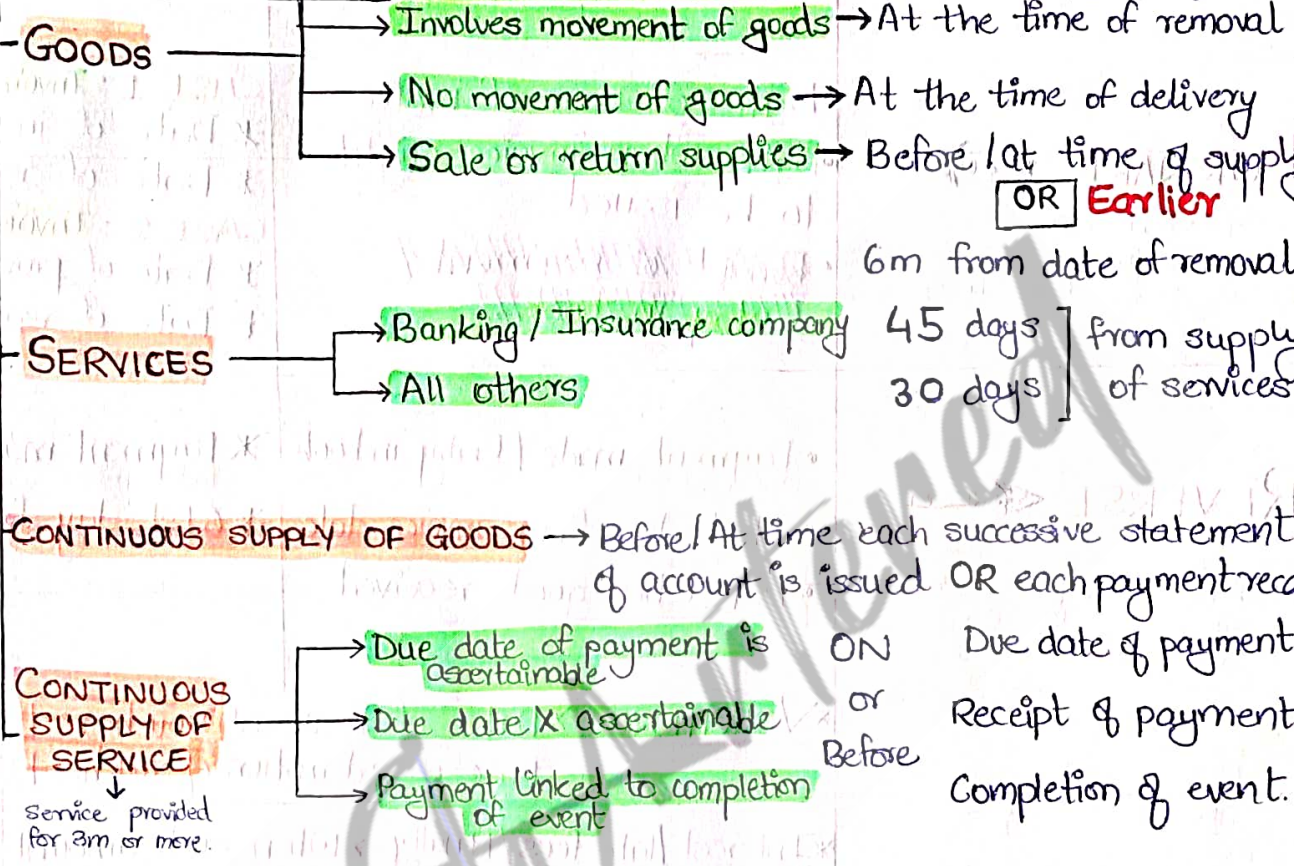 GOODS
Involves movement of goods → At the time of removal
No movement of goods → At the time of delivery
Sale or return supplies → Before / at time of supply
OR Earlier
6m from date of removal
SERVICES
Banking / Insurance company 45 days
All others 30 days
from supply
of services
CONTINUOUS SUPPLY OF GOODS → Before / At time each successive statement
of account is issued OR each payment
CONTINUOUS
SUPPLY OF
SERVICE
↓
Service provided
for 3m or more.
Due date of payment is
ascertainable
ON
Due date of payment
or
Due date X ascertainable
Receipt of payment
Before
Payment linked to completion
of event
Completion of event.
Artered